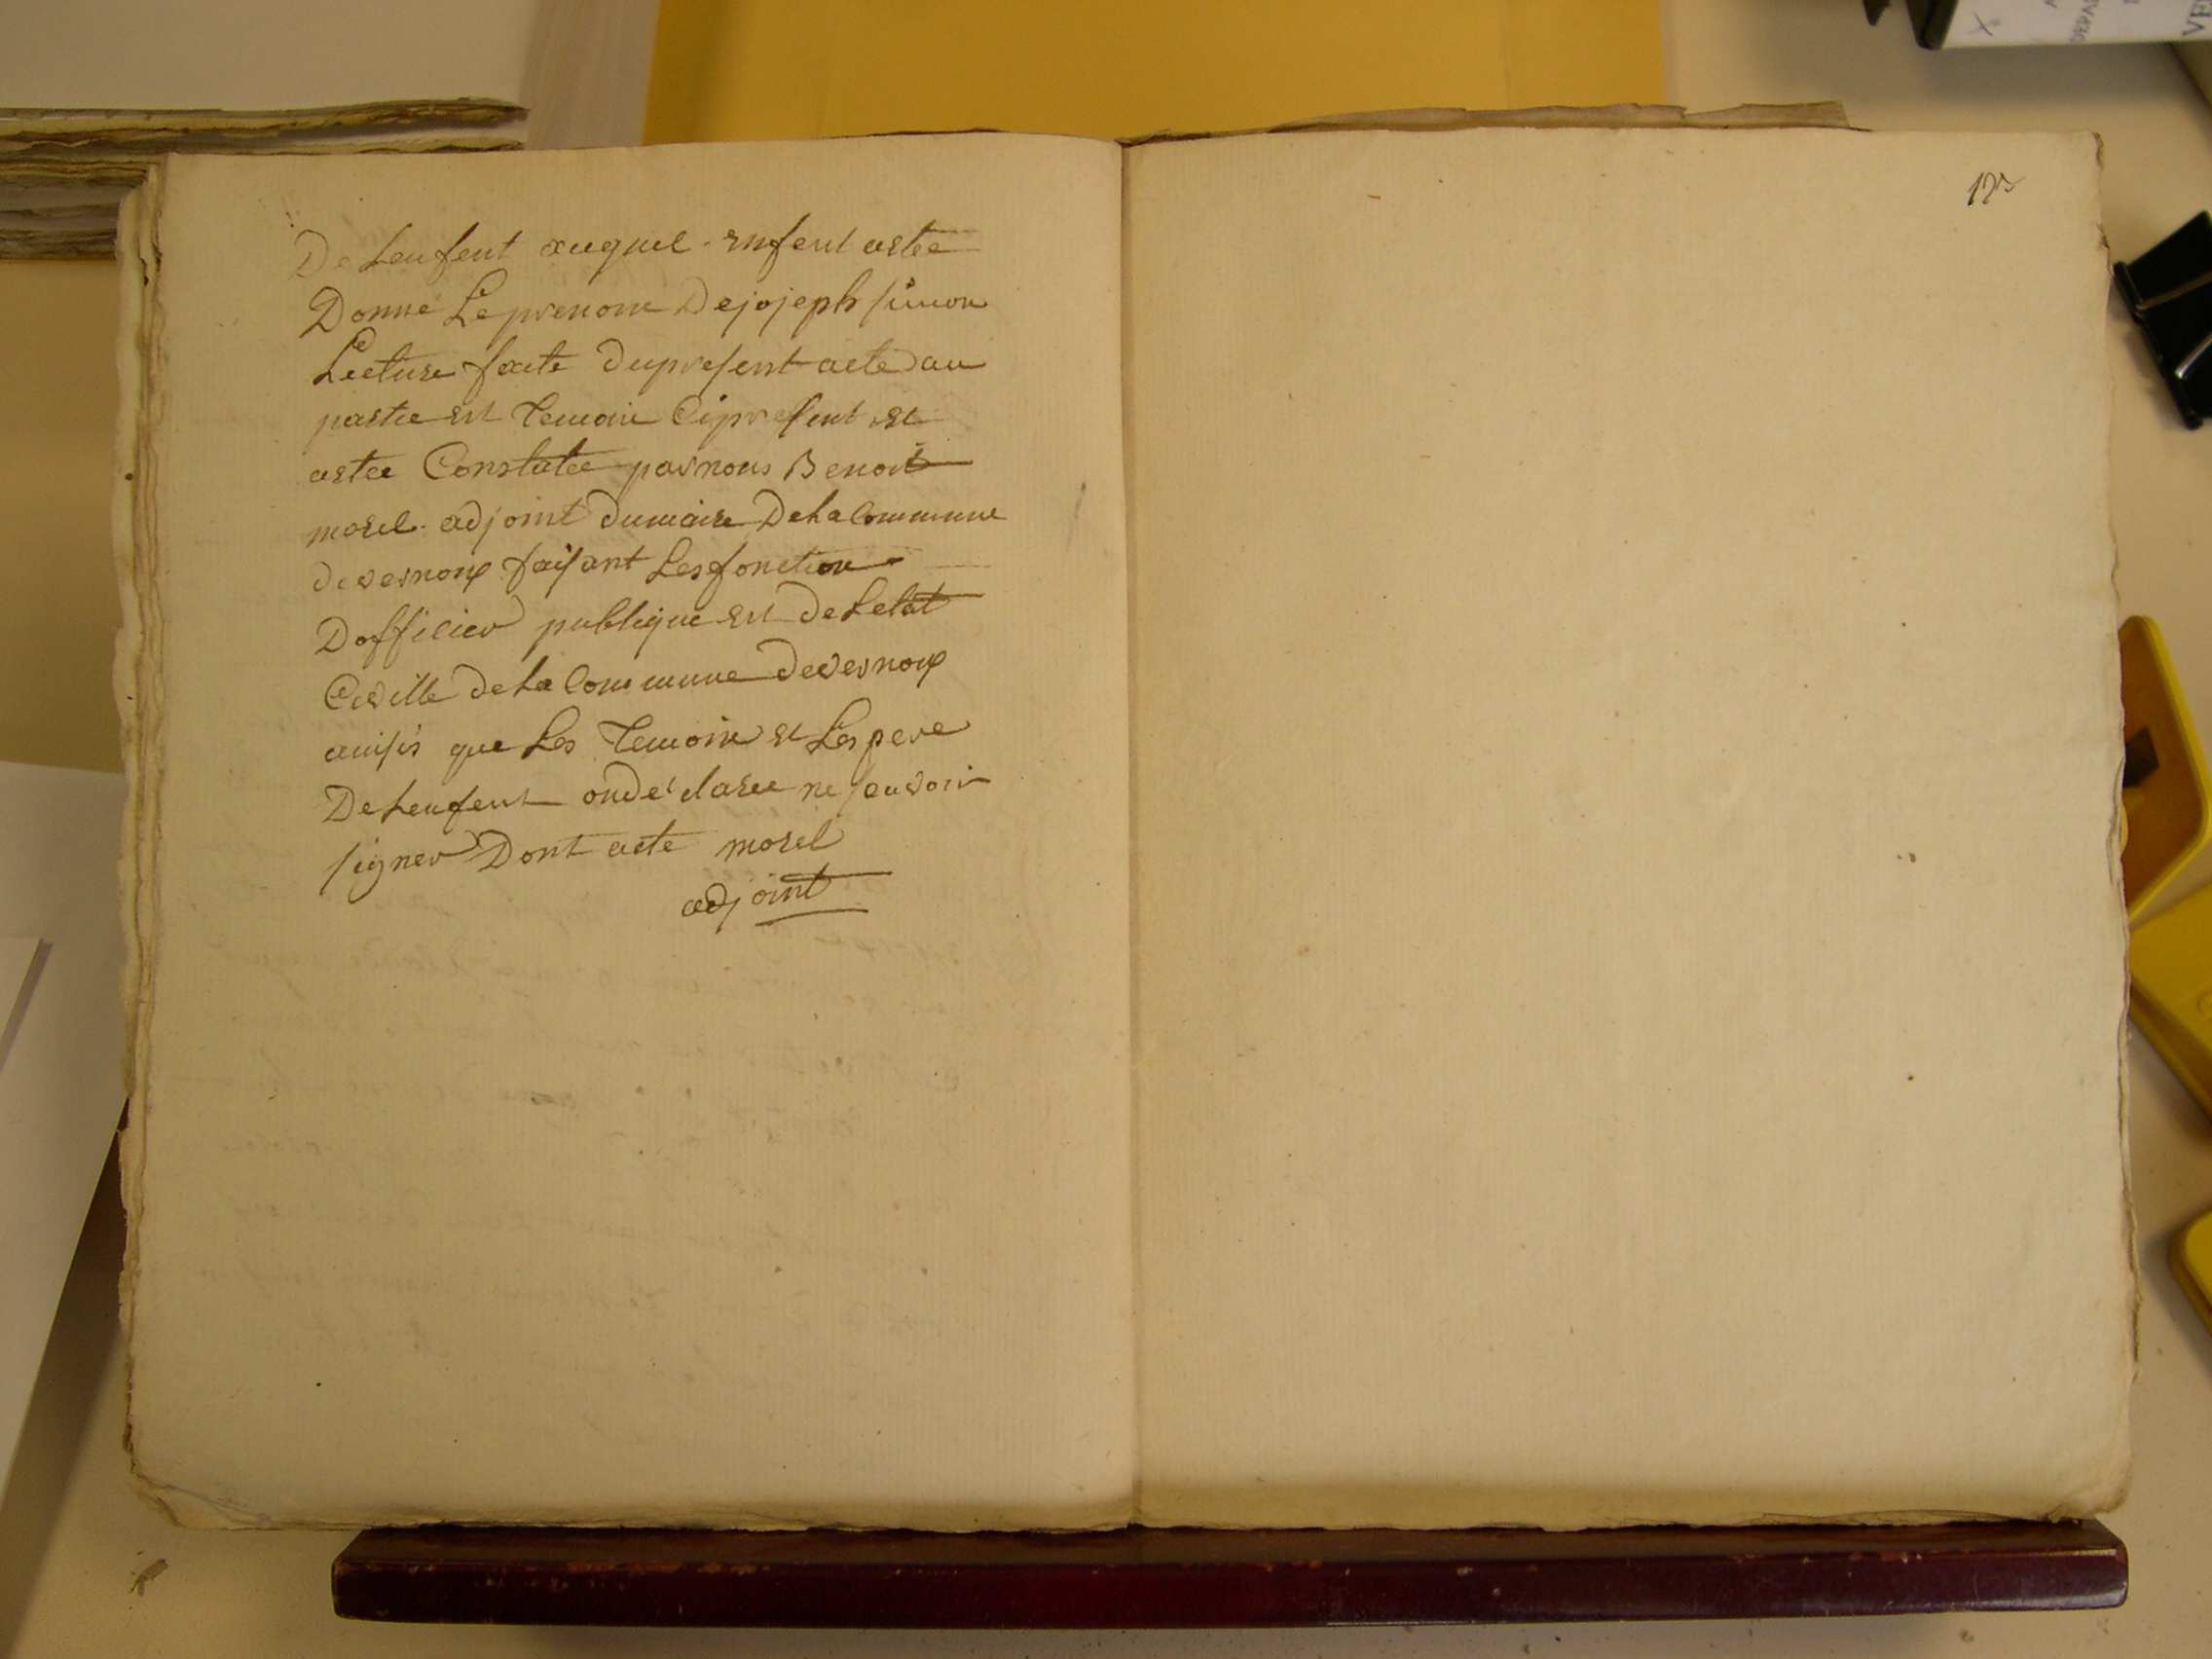 De Lenfent auquel enfent astee
Donné Le prenom De jojeph simon
Lecture faite du present acte au
partie est temoin Ci present est
astee Constatee par nous Benoit
morel adjoint dumaire De La Commune
de vernoux faisant Les fonction
Dofficier publique est de Letat
Civille de La Commune de vernoux
ainsis que Les temoin et Les pere
De Lenfent onde claree ne scavoir
signer Dont acte morel
adjoint